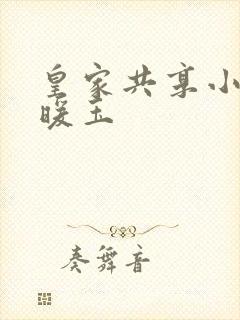 皇家共享小
暖玉
奏舞音